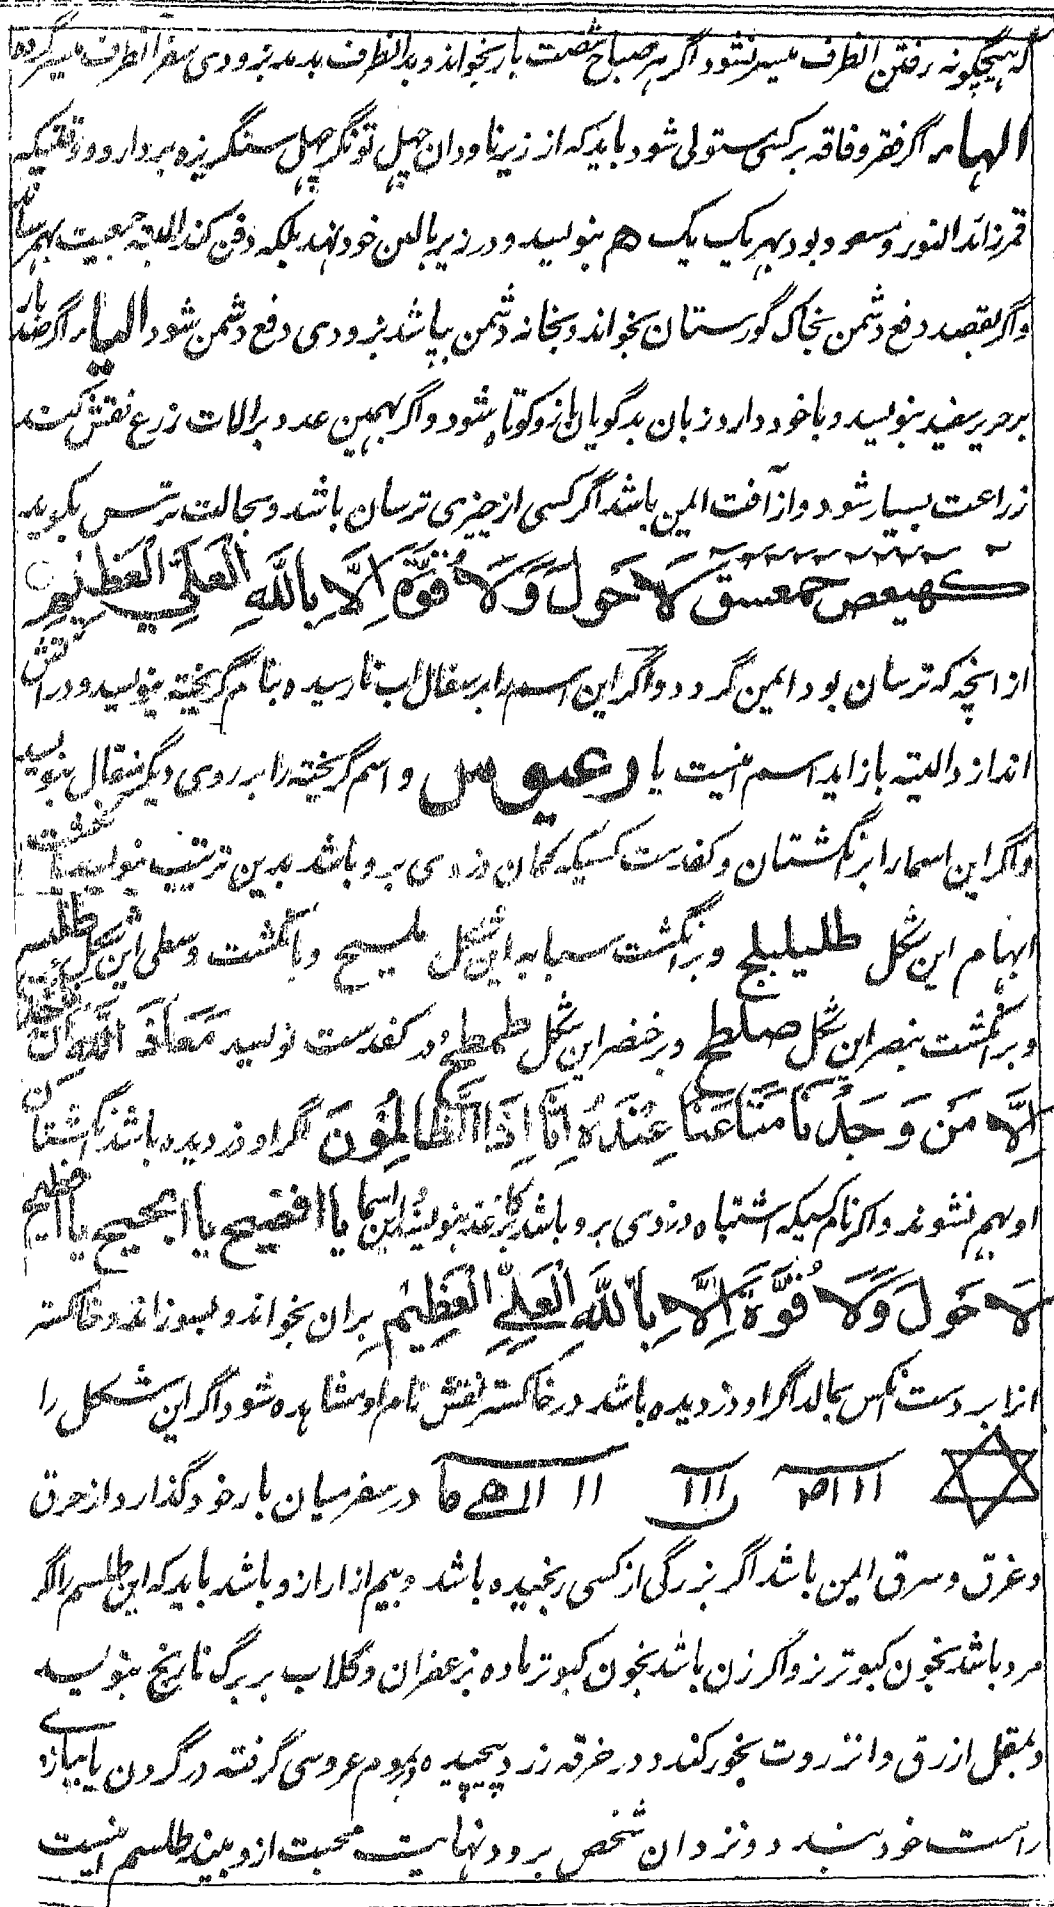 که هیچگونه رفتن انطرف میسر نشود اگر هر صباح شصت بار بخواند و بدانطرف بدمد بزودی سفر انطرف میسر گردد
الهاء اگر فقر و فاقه بر کسی مستولی شود باید که از زیر ناودان چهل تونگر چهل سنگریزه بردارد و وقتیکه
قمر زائد النور و مسعود بود بهر یک یک هم بنویسد و در زیر بالین خود نهد بلکه دفن کند البته جمعیت بهم رساند
و اگر بقصد دفع دشمن بخاک گورستان بخواند و بخانه دشمن بپاشد بزودی دفع دشمن شود الیاء اگر صد بار
بر حریر سفید بنویسد و با خود دارد زبان بدگویان ازو کوتاه شود و اگر بهمین عدد بر الات زرع نقش کنند
زراعت بسیار شود و از آفت ایمن باشد اگر کسی از چیزی ترسان باشد و بحالت ترس بگوید
کهیعص حمعسق لَا حَولَ وَّلَا قُوَّةَ اِلَّا بِاللَّهِ الْعَلِيِّ الْعَظِيْمِ
از انچه که ترسان بود ایمن گردد و اگر این اسم را بر سفال اب نارسیده بنام گریخته بنویسد و در اتش
اندازد البته باز اید اسم اینست یا دعیوس و اسم گریخته را بر روی دیگر سفال بنویسد
و اگر این اسما را بر انگشتان و کفدست کسیکه گمان دزدی برو باشد بدین ترتیب بنویسد بانگشت
ابهام این شکل طلیلیلج و بر انگشت سبابه این شکل ملسیح و بانگشت وسطی این شکل
و بر انگشت بنصر این شکل صلطح و بر خنصر این شکل طمطح و در کفدست نویسد مَعَاذَ اللَّهِ اَنْ
اِلَّا مَن وَجَدْنَا مَتَاعَنَا عِنْدَهُ اِنَّا اِذًا الَّظَالِمُوْنَ اگر او دزدیده باشد انگشتان
او بهم نشوند و اگر نام کسیکه اشتباه دزدی برو باشد بکاغذ بنویسد این اسما یا افضیح یا ابحیح یا
لَا حَولَ وَّلَا قُوَّةَ اِلَّا بِاللَّهِ الْعَلِيِّ الْعَظِيْمِ بران بخواند و بسوزاند و خاکستر
انرا بر دست انکس بمالد اگر او دزدیده باشد در خاکستر نقش نام او مشاهده شود اگر این شکل را
در سفر میان بار خود گذارد از حرق
و غرق و سرق ایمن باشد اگر بزرگی از کسی رنجیده باشد و بیم ازار ازو باشد باید که این طلسم را اگر
مرد باشد بخون کبوتر نر و اگر زن باشد بخون کبوتر ماده بزعفران و گلاب بر برگ نارنج بنویسد
و بمقل ازرق و انزروت بخور کند و در خرقه زرد پیچیده و بموم عروسی گرفته در گردن یا ببازوی
راست خود بندد و نزد ان شخص برود نهایت محبت ازو بیند طلسم اینست